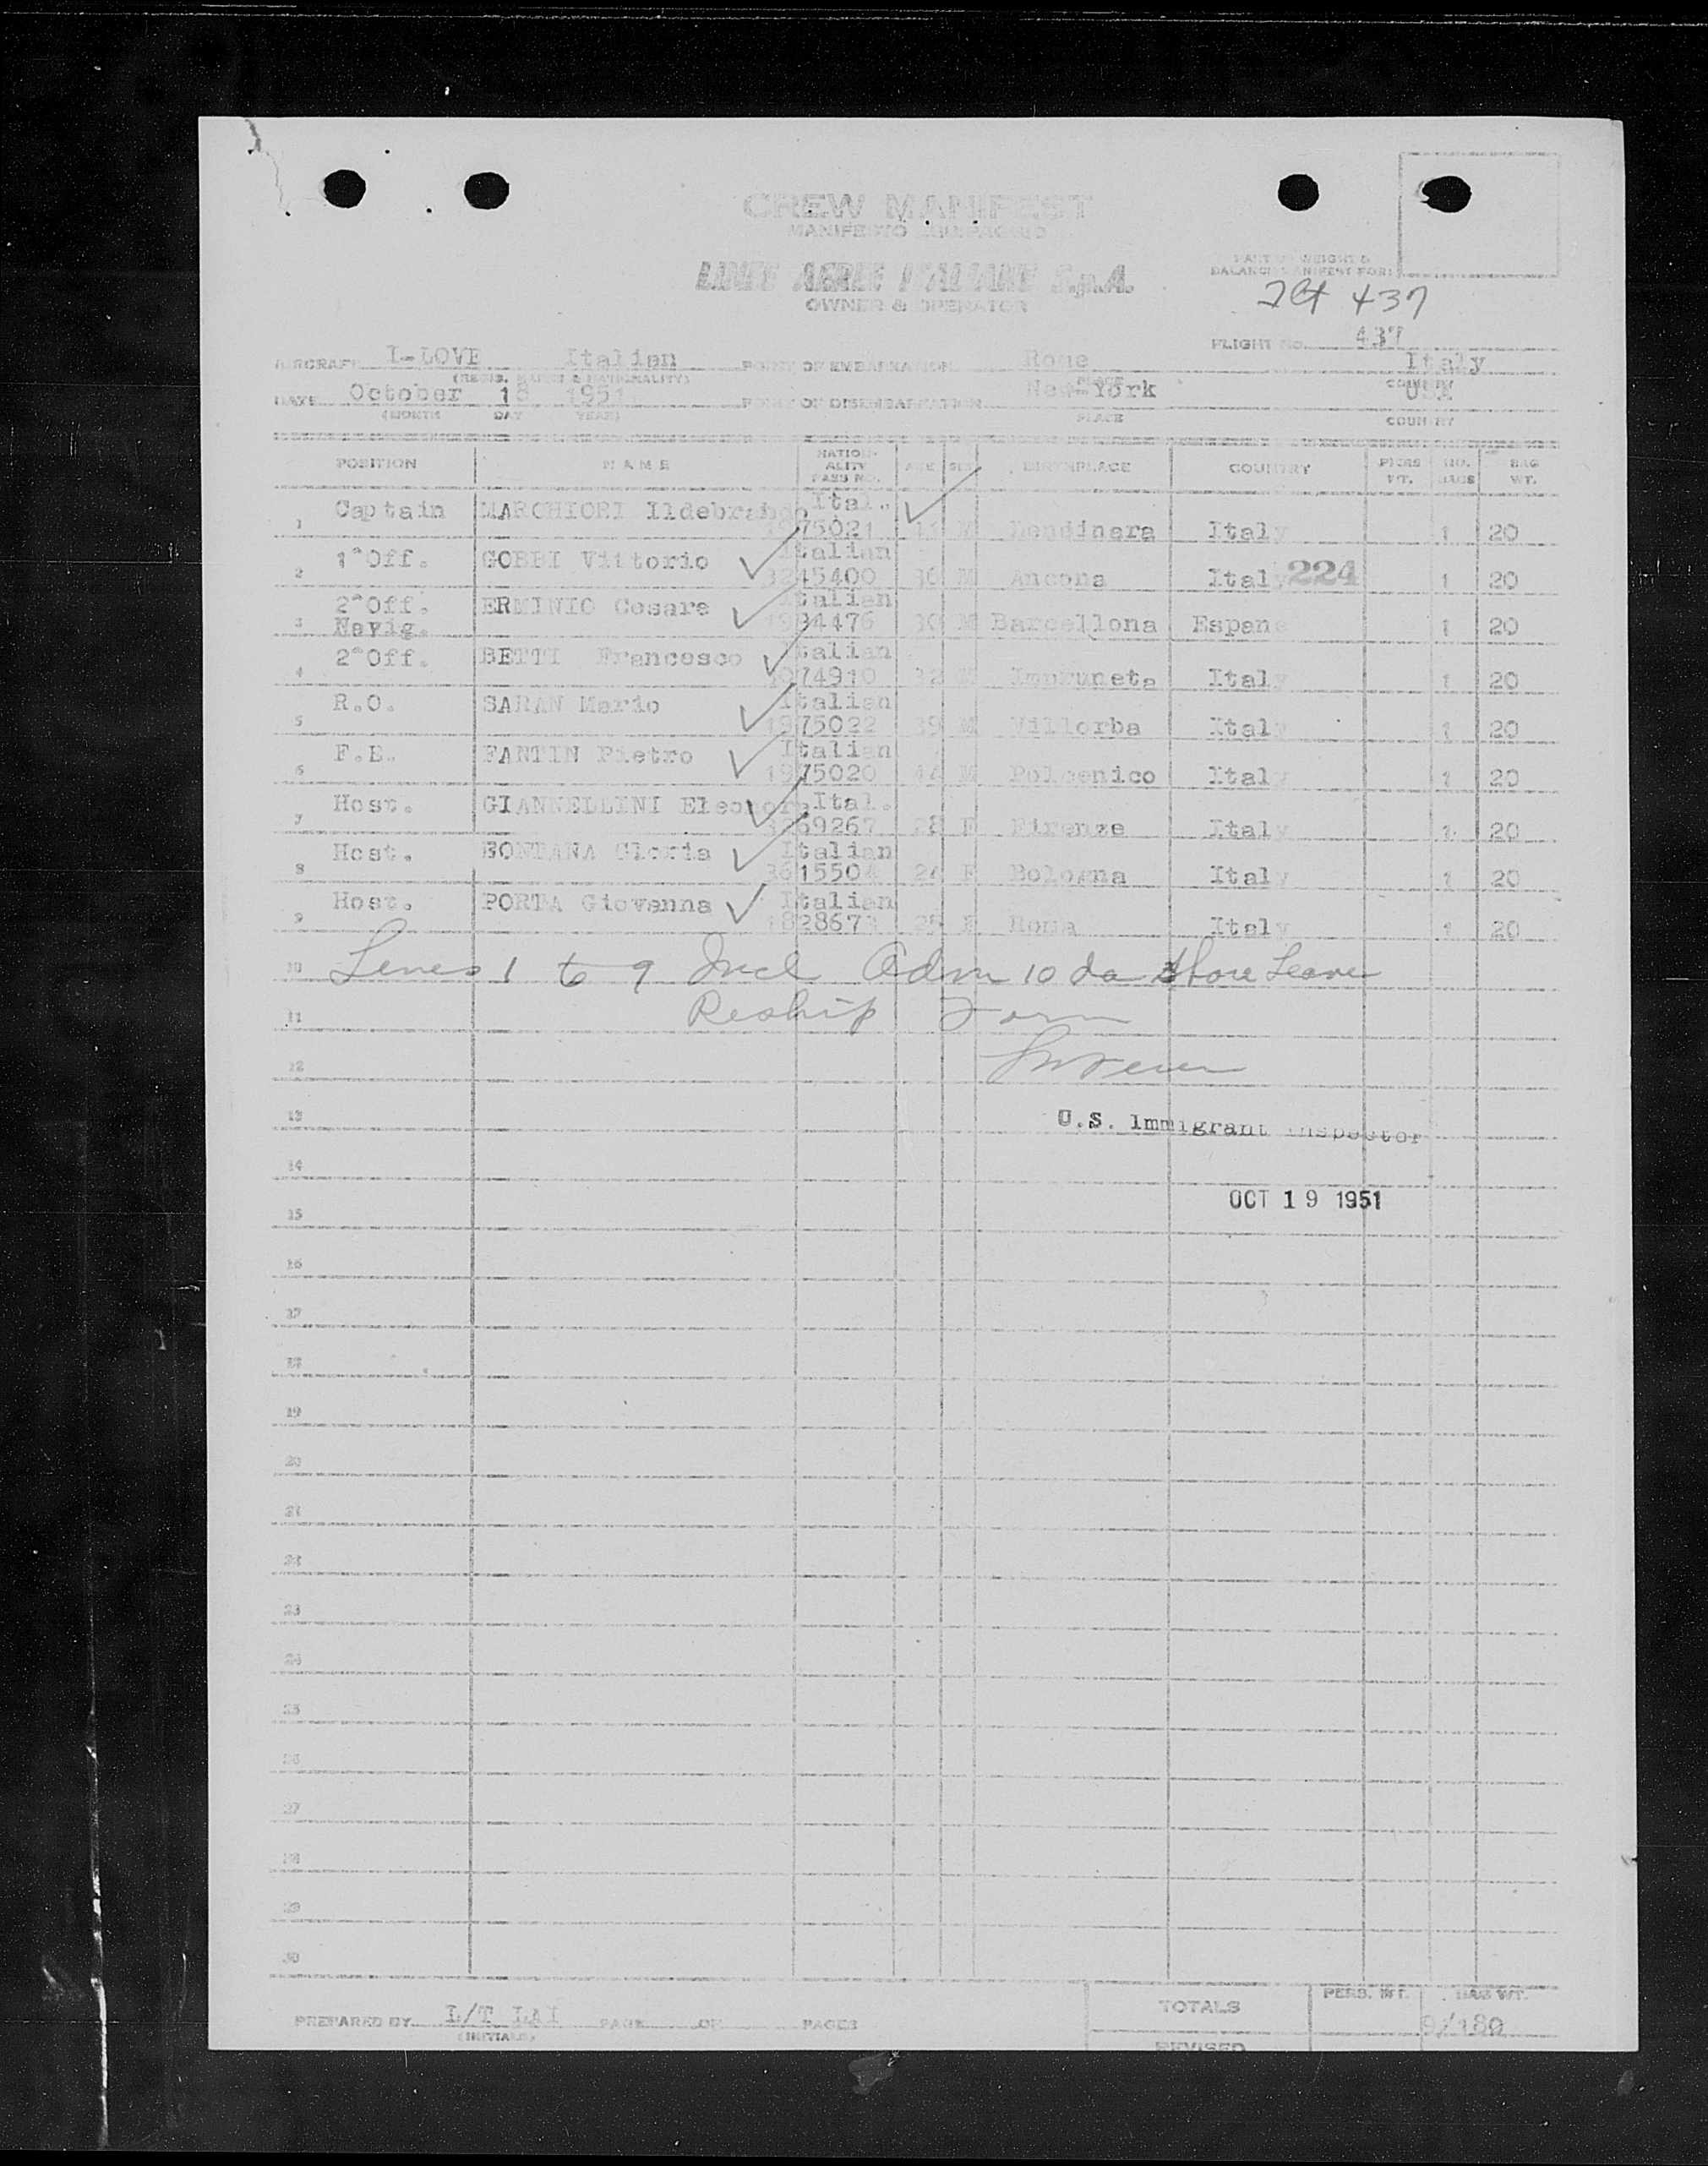 CREW MANIFEST
LINEE AEREE ITALIANE S.p.A.
OWNER & OPERATOR
PART OF WEIGHT &
BALANCE MANIFEST FORM
Flt 437
FLIGHT No. 437
AIRCRAFT I-LOVE Italian PORT OF EMBARKATION Rome Italy
(REGIS. MARKS & NATIONALITY) PLACE COUNTRY
DATE October 18 1951 PORT OF DISEMBARKATION New-York USA
(MONTH DAY YEAR) PLACE COUNTRY
POSITION NAME NATION-ALITY PASS NO. AGE SEX BIRTHPLACE COUNTRY PERS WT. NO. BAGS BAG WT.
1 Captain MARCHIORI Ildebrando Ital. 75021 M Lendinara Italy 1 20
2 1°Off. GOBBI Vittorio Italian 3245400 30 M Ancona Italy 224 1 20
3 2°Off. Navig. ERMINIO Cesare Italian 1984476 30 M Barcellona Espane 1 20
4 2°Off. BETTI Francesco Italian 3074910 32 M Impruneta Italy 1 20
5 R.O. SARAN Mario Italian 1975022 39 M Villorba Italy 1 20
6 F.E. FANTIN Pietro Italian 1975020 44 M Polcenico Italy 1 20
7 Host. GIANNELLINI Eleonora Ital. 69267 28 F Firenze Italy 1 20
8 Host. Gloria Italian 361550 24 F Bologna Italy 1 20
9 Host. PORTA Giovanna Italian 182867 F Roma Italy 1 20
10 Lines 1 to 9 Incl Adm 10 da Shore Leave
11 Reship Form
12
13 U.S. Immigrant Inspector
14
OCT 19 1951
15
16
17
18
19
20
21
22
23
24
25
26
27
28
29
30
PREPARED BY L/T LAI PAGE OF PAGES
(INITIALS)
TOTALS PERS. WT. BAG WT.
9/180
REVISED